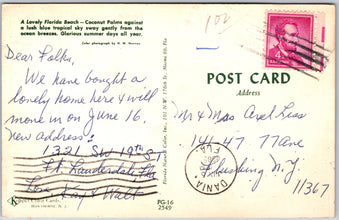 A Lovely Florida Beach — Coconut Palms against
a lush blue tropical sky sway gently from the
ocean breezes. Glorious summer days all year.
Color photograph by
Dear Folks,
We have bought a
lovely home here & will
move in on June 16.
New address:
1321 SW 19th St
Ft. Lauderdale, Fla.
Love Kay & Walt
PG-16
2549
102
POST CARD
Address
Mr & Mrs Axel Liss
141-47 77 Ave
Flushing N.Y.
11367
DANIA
FLA